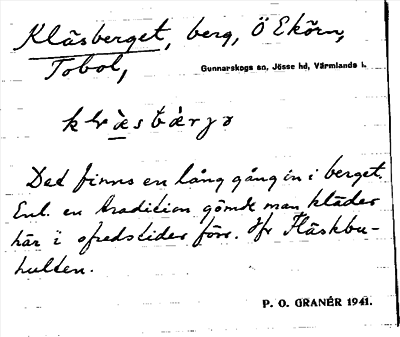 Kläsberget, berg, Ö Ekörn,
Tobol,
Gunnarskogs sn, Jösse hd, Värmlands l.
Det finns en lång gång in i berget.
Enl. en tradition gömde man kläder
här i ofredstider förr. Jfr Fläskbu-
hulten.
P. O. GRANÉR 1941.